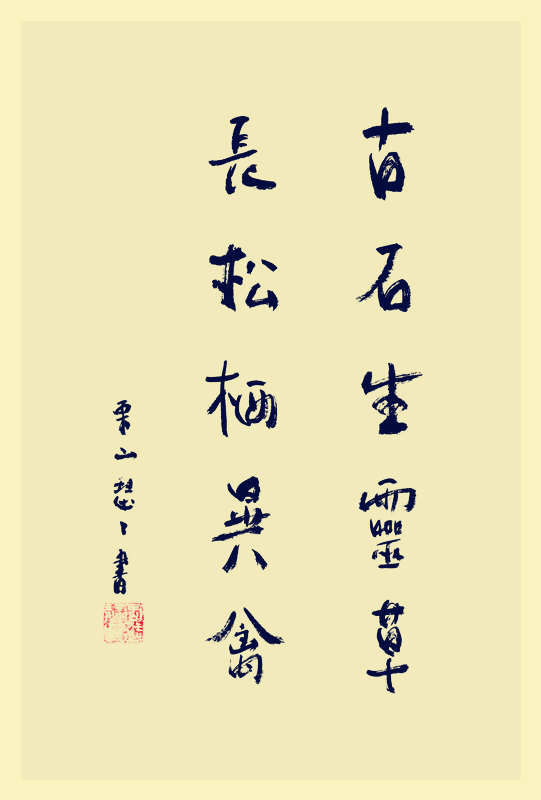 古石生靈草
長松栖異禽
栗山慧〻書